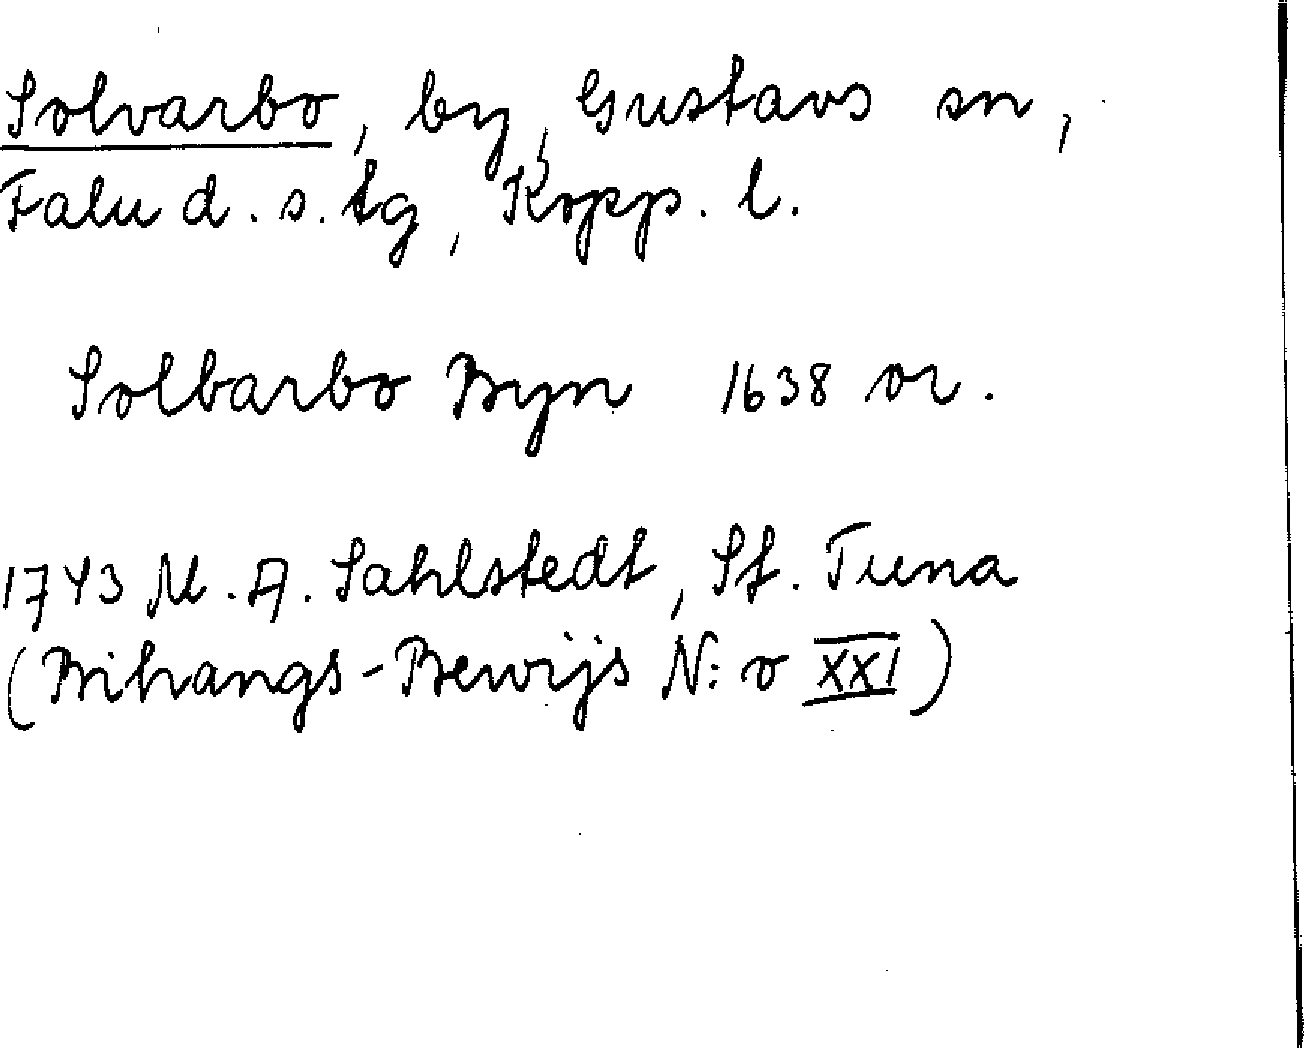 Solvarbo, by, Gustavs sn,
Falu d. s. tg, Kopp. l.
Solbarbo Byn 1638 or.
1743 M. A. Sahlstedt, St. Tuna
(Bihangs-Bewijs N:o XXI)